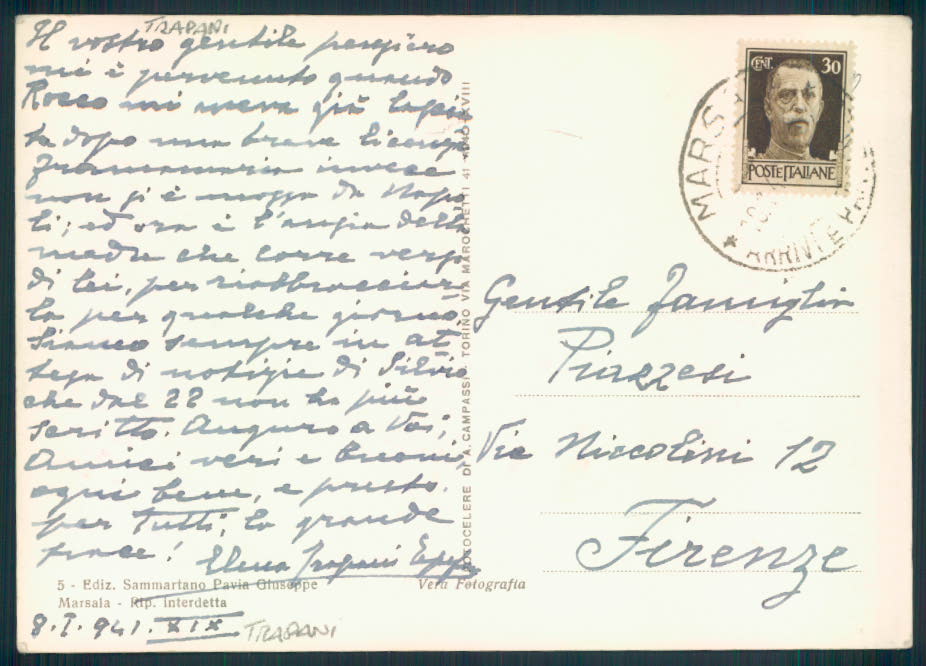 TRAPANI
Il vostro gentile pensiero
mi è pervenuto quando
Rocco mi aveva già lascia
ta dopo una breve licenza
invece
non si è mossa da Napo
li; ed ora è l'ansia della
madre che corre verso
di lei, per riabbracciar
la per qualche giorno
Siamo sempre in at
tesa di notizie di Silvio
che dal 22 non ha più
scritto. Auguro a Voi,
Amici veri e buoni,
ogni bene, e presto.
per tutti, la grande
pace!
Elena Trapani
5 - Ediz. Sammartano Pavia Giuseppe
Marsala - Rip. interdetta
Vera Fotografia
8.I.941.XIX
TRAPANI
FOTOCELERE DI A. CAMPASSI - TORINO VIA MAROCHETTI 41 ANNO XVIII
CENT. 30
POSTE ITALIANE
MARSALA
Gentile Famiglia
Piazzesi
Via Niccolini 12
Firenze